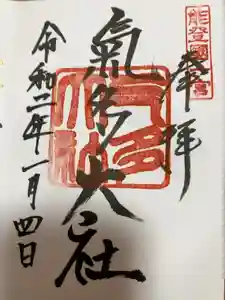 能登國一宮
奉拝
氣多大社
令和二年一月四日